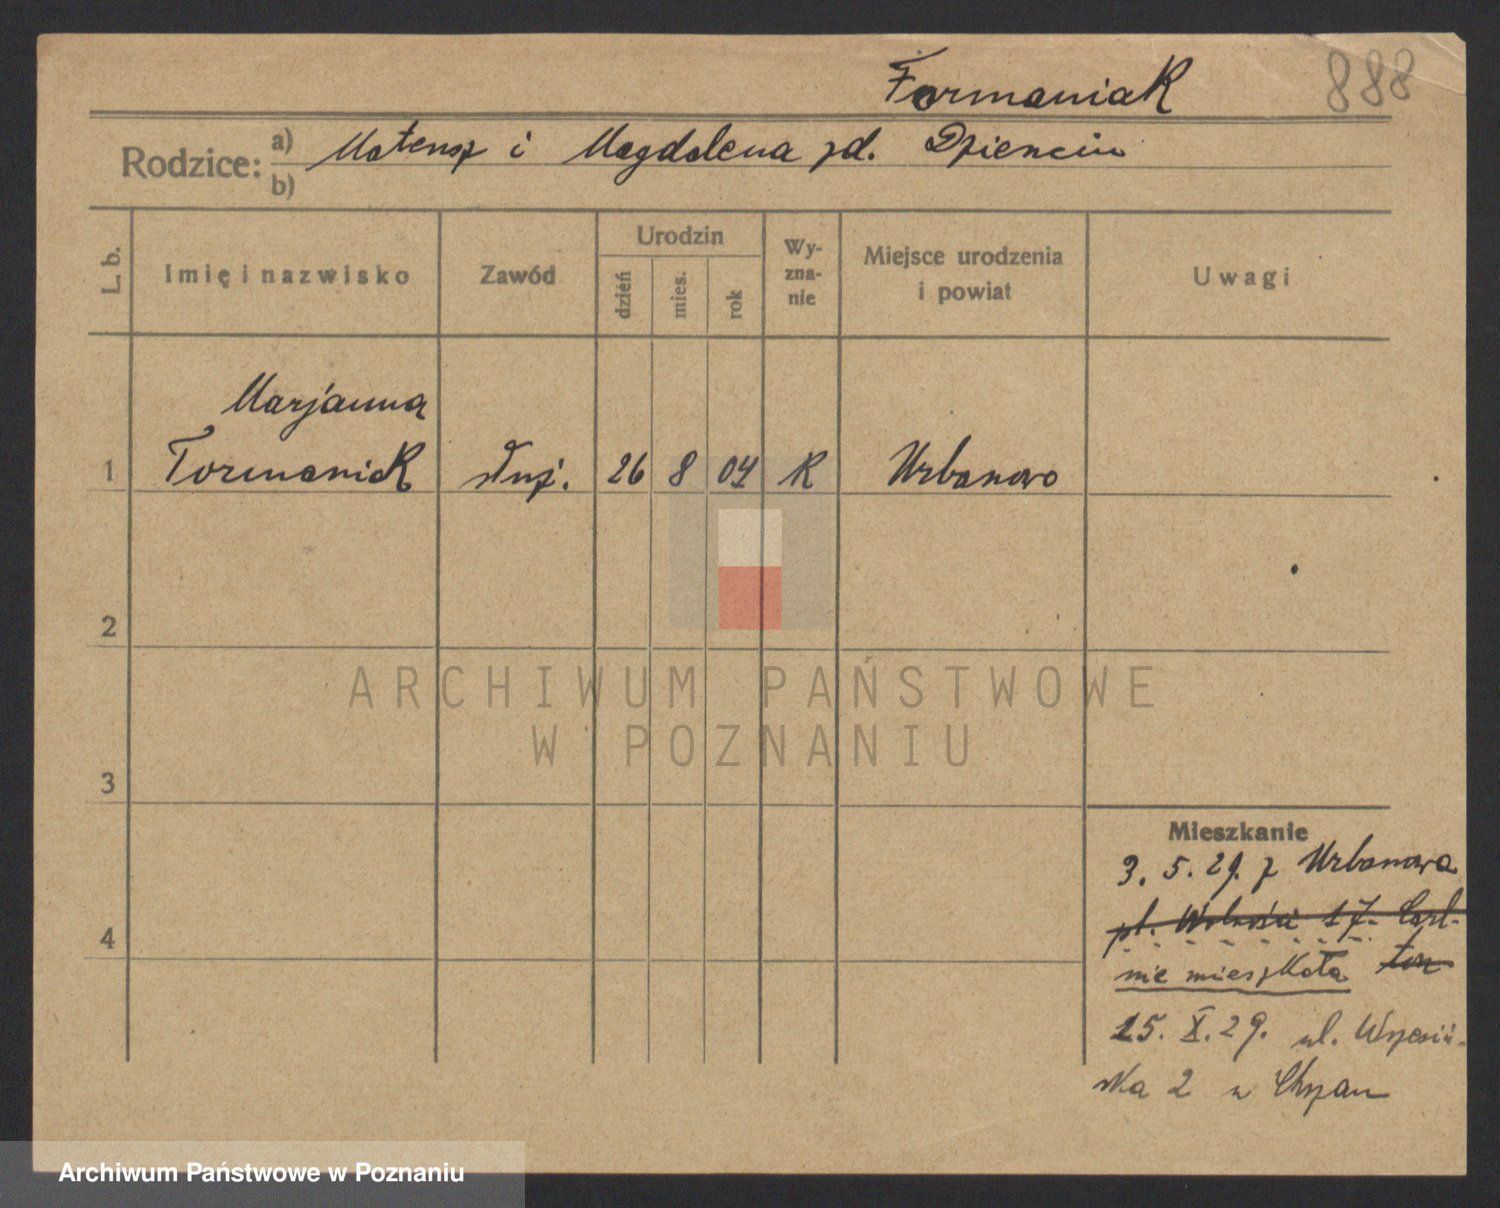 Formaniak 888
Rodzice: a) Mateusz i Magdalena zd.
b)
L. b.
Imię i nazwisko
Zawód
Urodzin
dzień
mies.
rok
Wy-
zna-
nie
Miejsce urodzenia
i powiat
Uwagi
Marjanna
1 Formaniak służ. 26 8 04 K Urbanowo
2
3
4
ARCHIWUM PAŃSTWOWE
W POZNANIU
Mieszkanie
3. 5. 29. z Urbanowa
pl. Wolności 17. Carl-
ton
nie mieszkała
15. X. 29. ul. Wrzesiń-
ska 2 u
Archiwum Państwowe w Poznaniu